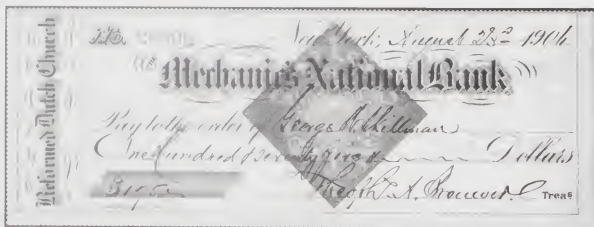 Reformed Dutch Church
New York, August 1906
Mechanics National Bank
Pay to the order of George
One hundred & seventy five Dollars
Theoph. A. Brouwer. Treas